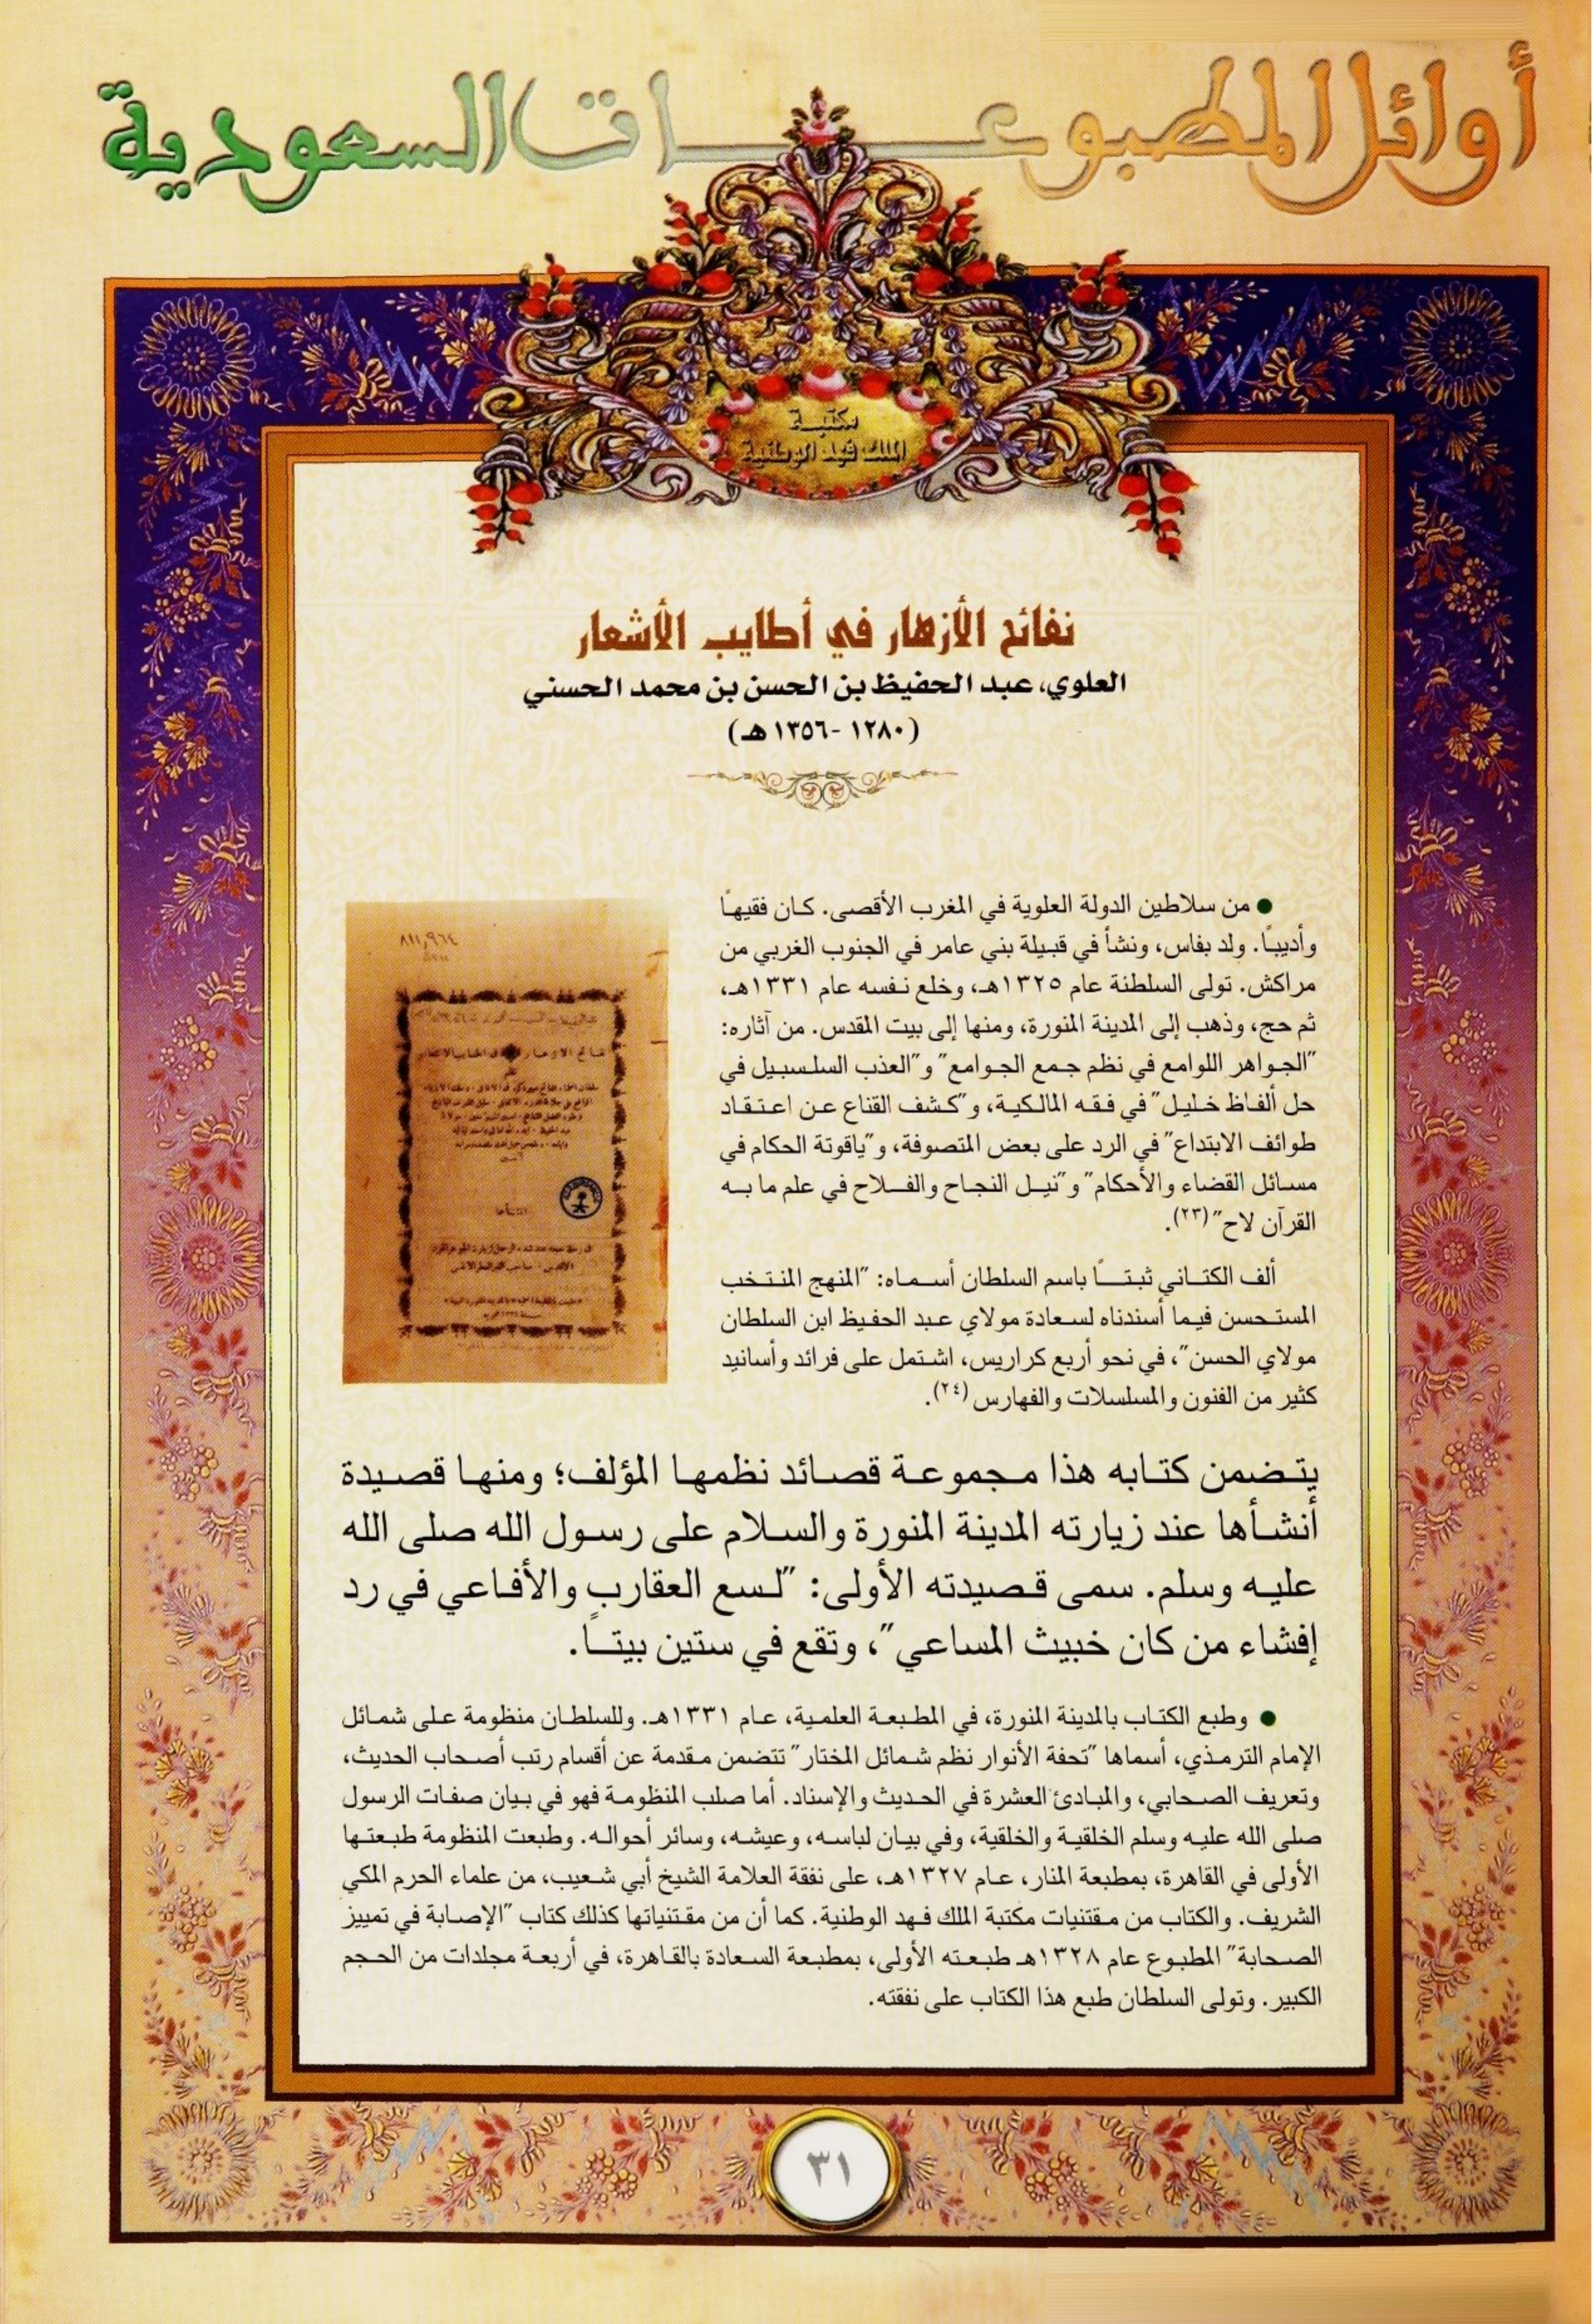 أوائل المطبوعات السعودية
مكتبة
الملك فهد الوطنية
نفائح الأزهار في أطايب الأشعار
العلوي، عبد الحفيظ بن الحسن بن محمد الحسني
(١٢٨٠ -١٣٥٦ هـ)
● من سلاطين الدولة العلوية في المغرب الأقصى. كان فقيهاً
وأديباً. ولد بفاس، ونشأ في قبيلة بني عامر في الجنوب الغربي من
مراكش. تولى السلطنة عام ١٣٢٥هـ، وخلع نفسه عام ١٣٣١هـ،
ثم حج، وذهب إلى المدينة المنورة، ومنها إلى بيت المقدس. من آثاره:
"الجواهر اللوامع في نظم جمع الجوامع" و"العذب السلسبيل في
حل ألفاظ خليل" في فقه المالكية، و"كشف القناع عن اعتقاد
طوائف الابتداع" في الرد على بعض المتصوفة، و"ياقوتة الحكام في
مسائل القضاء والأحكام" و"نيل النجاح والفلاح في علم ما به
القرآن لاح" (٢٣).
ألف الكتاني ثبتاً باسم السلطان أسماه: "المنهج المنتخب
المستحسن فيما أسندناه لسعادة مولاي عبد الحفيظ ابن السلطان
مولاي الحسن"، في نحو أربع كراريس، اشتمل على فرائد وأسانيد
كثير من الفنون والمسلسلات والفهارس (٢٤).
٨١١,٩٦٤
يتضمن كتابه هذا مجموعة قصائد نظمها المؤلف؛ ومنها قصيدة
أنشأها عند زيارته المدينة المنورة والسلام على رسول الله صلى الله
عليه وسلم. سمى قصيدته الأولى: "لسع العقارب والأفاعي في رد
إفشاء من كان خبيث المساعي"، وتقع في ستين بيتاً.
● وطبع الكتاب بالمدينة المنورة، في المطبعة العلمية، عام ١٣٣١هـ. وللسلطان منظومة على شمائل
الإمام الترمذي، أسماها "تحفة الأنوار نظم شمائل المختار" تتضمن مقدمة عن أقسام رتب أصحاب الحديث،
وتعريف الصحابي، والمبادئ العشرة في الحديث والإسناد. أما صلب المنظومة فهو في بيان صفات الرسول
صلى الله عليه وسلم الخلقية والخلقية، وفي بيان لباسه، وعيشه، وسائر أحواله. وطبعت المنظومة طبعتها
الأولى في القاهرة، بمطبعة المنار، عام ١٣٢٧هـ، على نفقة العلامة الشيخ أبي شعيب، من علماء الحرم المكي
الشريف. والكتاب من مقتنيات مكتبة الملك فهد الوطنية. كما أن من مقتنياتها كذلك كتاب "الإصابة في تمييز
الصحابة" المطبوع عام ١٣٢٨هـ طبعته الأولى، بمطبعة السعادة بالقاهرة، في أربعة مجلدات من الحجم
الكبير. وتولى السلطان طبع هذا الكتاب على نفقته.
٣١